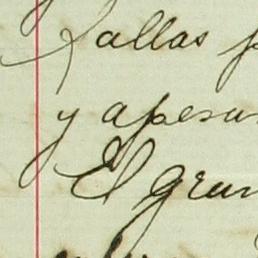 fallas p
y apesar
El gran